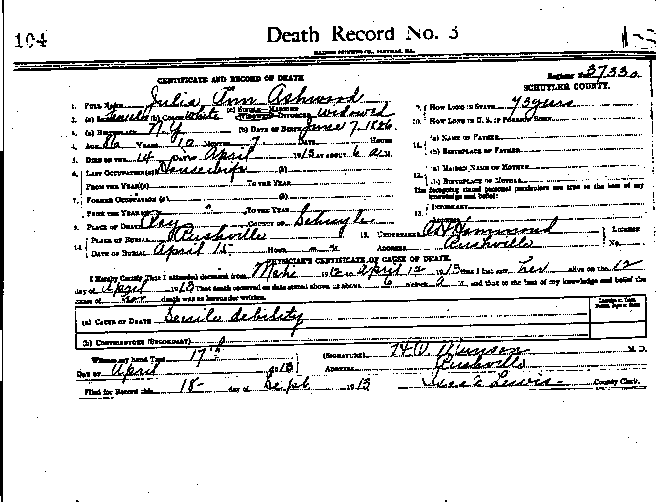 104
Death Record No. 3
CERTIFICATE AND RECORD OF DEATH
Register No. 3733a
SCHUYLER COUNTY.
1. FULL NAME Julia Ann Ashwood
2. (a) Female (b) COLOR White (c) SINGLE MARRIED WIDOWED DIVORCED Widowed
3. (a) BIRTHPLACE N.Y. (b) DATE OF BIRTH June 7, 1826
4. AGE 86 YEARS 10 MONTHS 7 DAYS HOURS
5. DIED ON THE 14 DAY OF April 1913 AT ABOUT 6 A.M.
6. LAST OCCUPATION (a) Housewife (b)
FROM THE YEAR(S) TO THE YEAR
7. FORMER OCCUPATION (a) (b)
FROM THE YEAR(S) TO THE YEAR
8. PLACE OF DEATH COUNTY OF Schuyler
PLACE OF BURIAL Rushville
14. DATE OF BURIAL April 15 HOUR M
9. HOW LONG IN STATE 73 years
10. HOW LONG IN U. S. IF FOREIGN BORN
11. (a) NAME OF FATHER
(b) BIRTHPLACE OF FATHER
12. (a) MAIDEN NAME OF MOTHER
(b) BIRTHPLACE OF MOTHER
The foregoing stated personal particulars are true to the best of my knowledge and belief:
13. INFORMANT
ADDRESS
15. UNDERTAKER Hammond
ADDRESS Rushville
LICENSE No.
PHYSICIAN'S CERTIFICATE OF CAUSE OF DEATH.
I Hereby Certify That I attended deceased from Mch 1912 to April 12 1913 that I last saw her alive on the 12
day of April 1913 That death occurred on date stated above at about 6 o'clock a M., and that to the best of my knowledge and belief the
cause of her death was as hereunder written.
(a) CAUSE OF DEATH Senile debility
(b) CONTRIBUTORY (SECONDARY)
Witness my hand This 17th
DAY OF April 1913
(SIGNATURE) M. D.
ADDRESS Rushville
Filed for Record this 18 day of Sept 1913
Lewis County Clerk.